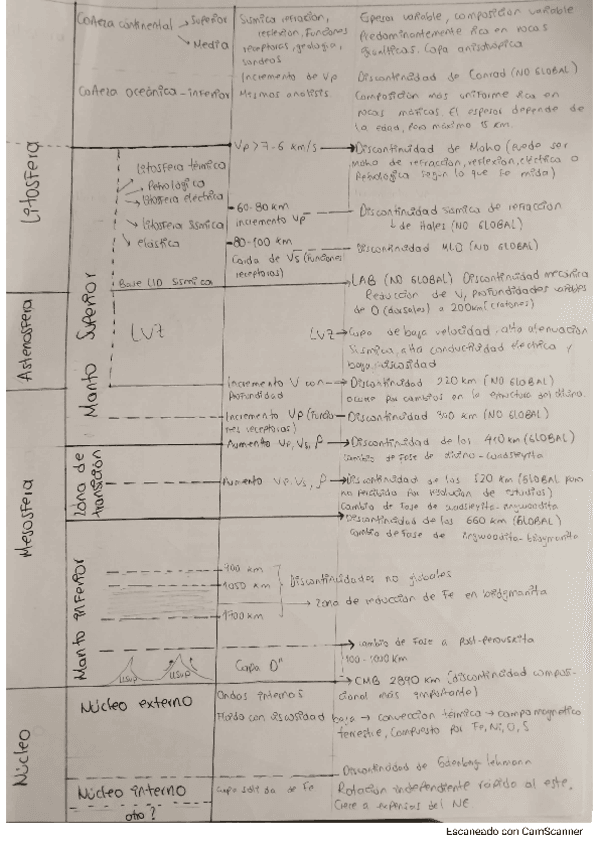 Corteza continental → Superior
→ Media
Sísmica refracción,
reflexión, funciones
receptoras, geología,
sondeos
Espesor variable, composición variable
Predominantemente rica en rocas
graníticas. Capa anisotrópica
Incremento de Vp
Discontinuidad de Conrad (NO GLOBAL)
Corteza oceánica - inferior
Mismos análisis
Composición más uniforme rica en
rocas máficas. El espesor depende de
la edad, pero máximo 15 km.
Litosfera
Vp > 7-6 km/s
Discontinuidad de Moho (puede ser
Moho de refracción, reflexión, eléctrica o
Petrológica según lo que se mida)
Litosfera térmica
Petrológica
litosfera eléctrica
litosfera sísmica
elástica
60-80 km
Incremento Vp
Discontinuidad sísmica de refracción
de Hales (NO GLOBAL)
80-100 km
Caída de Vs (funciones
receptoras)
Discontinuidad MLD (NO GLOBAL)
Base LID sísmica
LAB (NO GLOBAL) Discontinuidad mecánica
Reducción de V, profundidades variables
de 0 (dorsales) a 200km (cratones)
Astenosfera
Manto Superior
LVZ
LVZ → Capa de baja velocidad, alta atenuación
sísmica, alta conductividad eléctrica y
baja viscosidad
Incremento V con
profundidad
Discontinuidad 220 km (NO GLOBAL)
ocurre por cambios en la estructura del olivino.
Incremento Vp (funcio
nes receptoras)
Discontinuidad 300 km (NO GLOBAL)
Mesosfera
Zona de
transición
Aumento Vp, Vs, ρ
Discontinuidad de los 410 km (GLOBAL)
Cambio de fase de olivino-wadsleyita
Aumento Vp, Vs, ρ
Discontinuidad de los 520 km (GLOBAL pero
no percibida por resolución de estudios)
Cambio de fase de wadsleyita-ringwoodita
Discontinuidad de los 660 km (GLOBAL)
Cambio de fase de ringwoodita-bridgmanita
Manto inferior
900 km
1050 km
1700 km
Discontinuidades no globales
Zona de reducción de Fe en bridgmanita
Cambio de fase a post-perovskita
Capa D"
ULSVP
ULSVP
CMB 2890 km (discontinuidad composi-
cional más importante)
Núcleo
Núcleo externo
Ondas internas
Fluido con viscosidad baja → convección térmica → campo magnético
terrestre, compuesto por Fe, Ni, O, S
Discontinuidad de Lehmann
Núcleo interno
Capa sólida de Fe
Rotación independiente rápido al este,
Crece a expensas del NE.
otro?
Escaneado con CamScanner